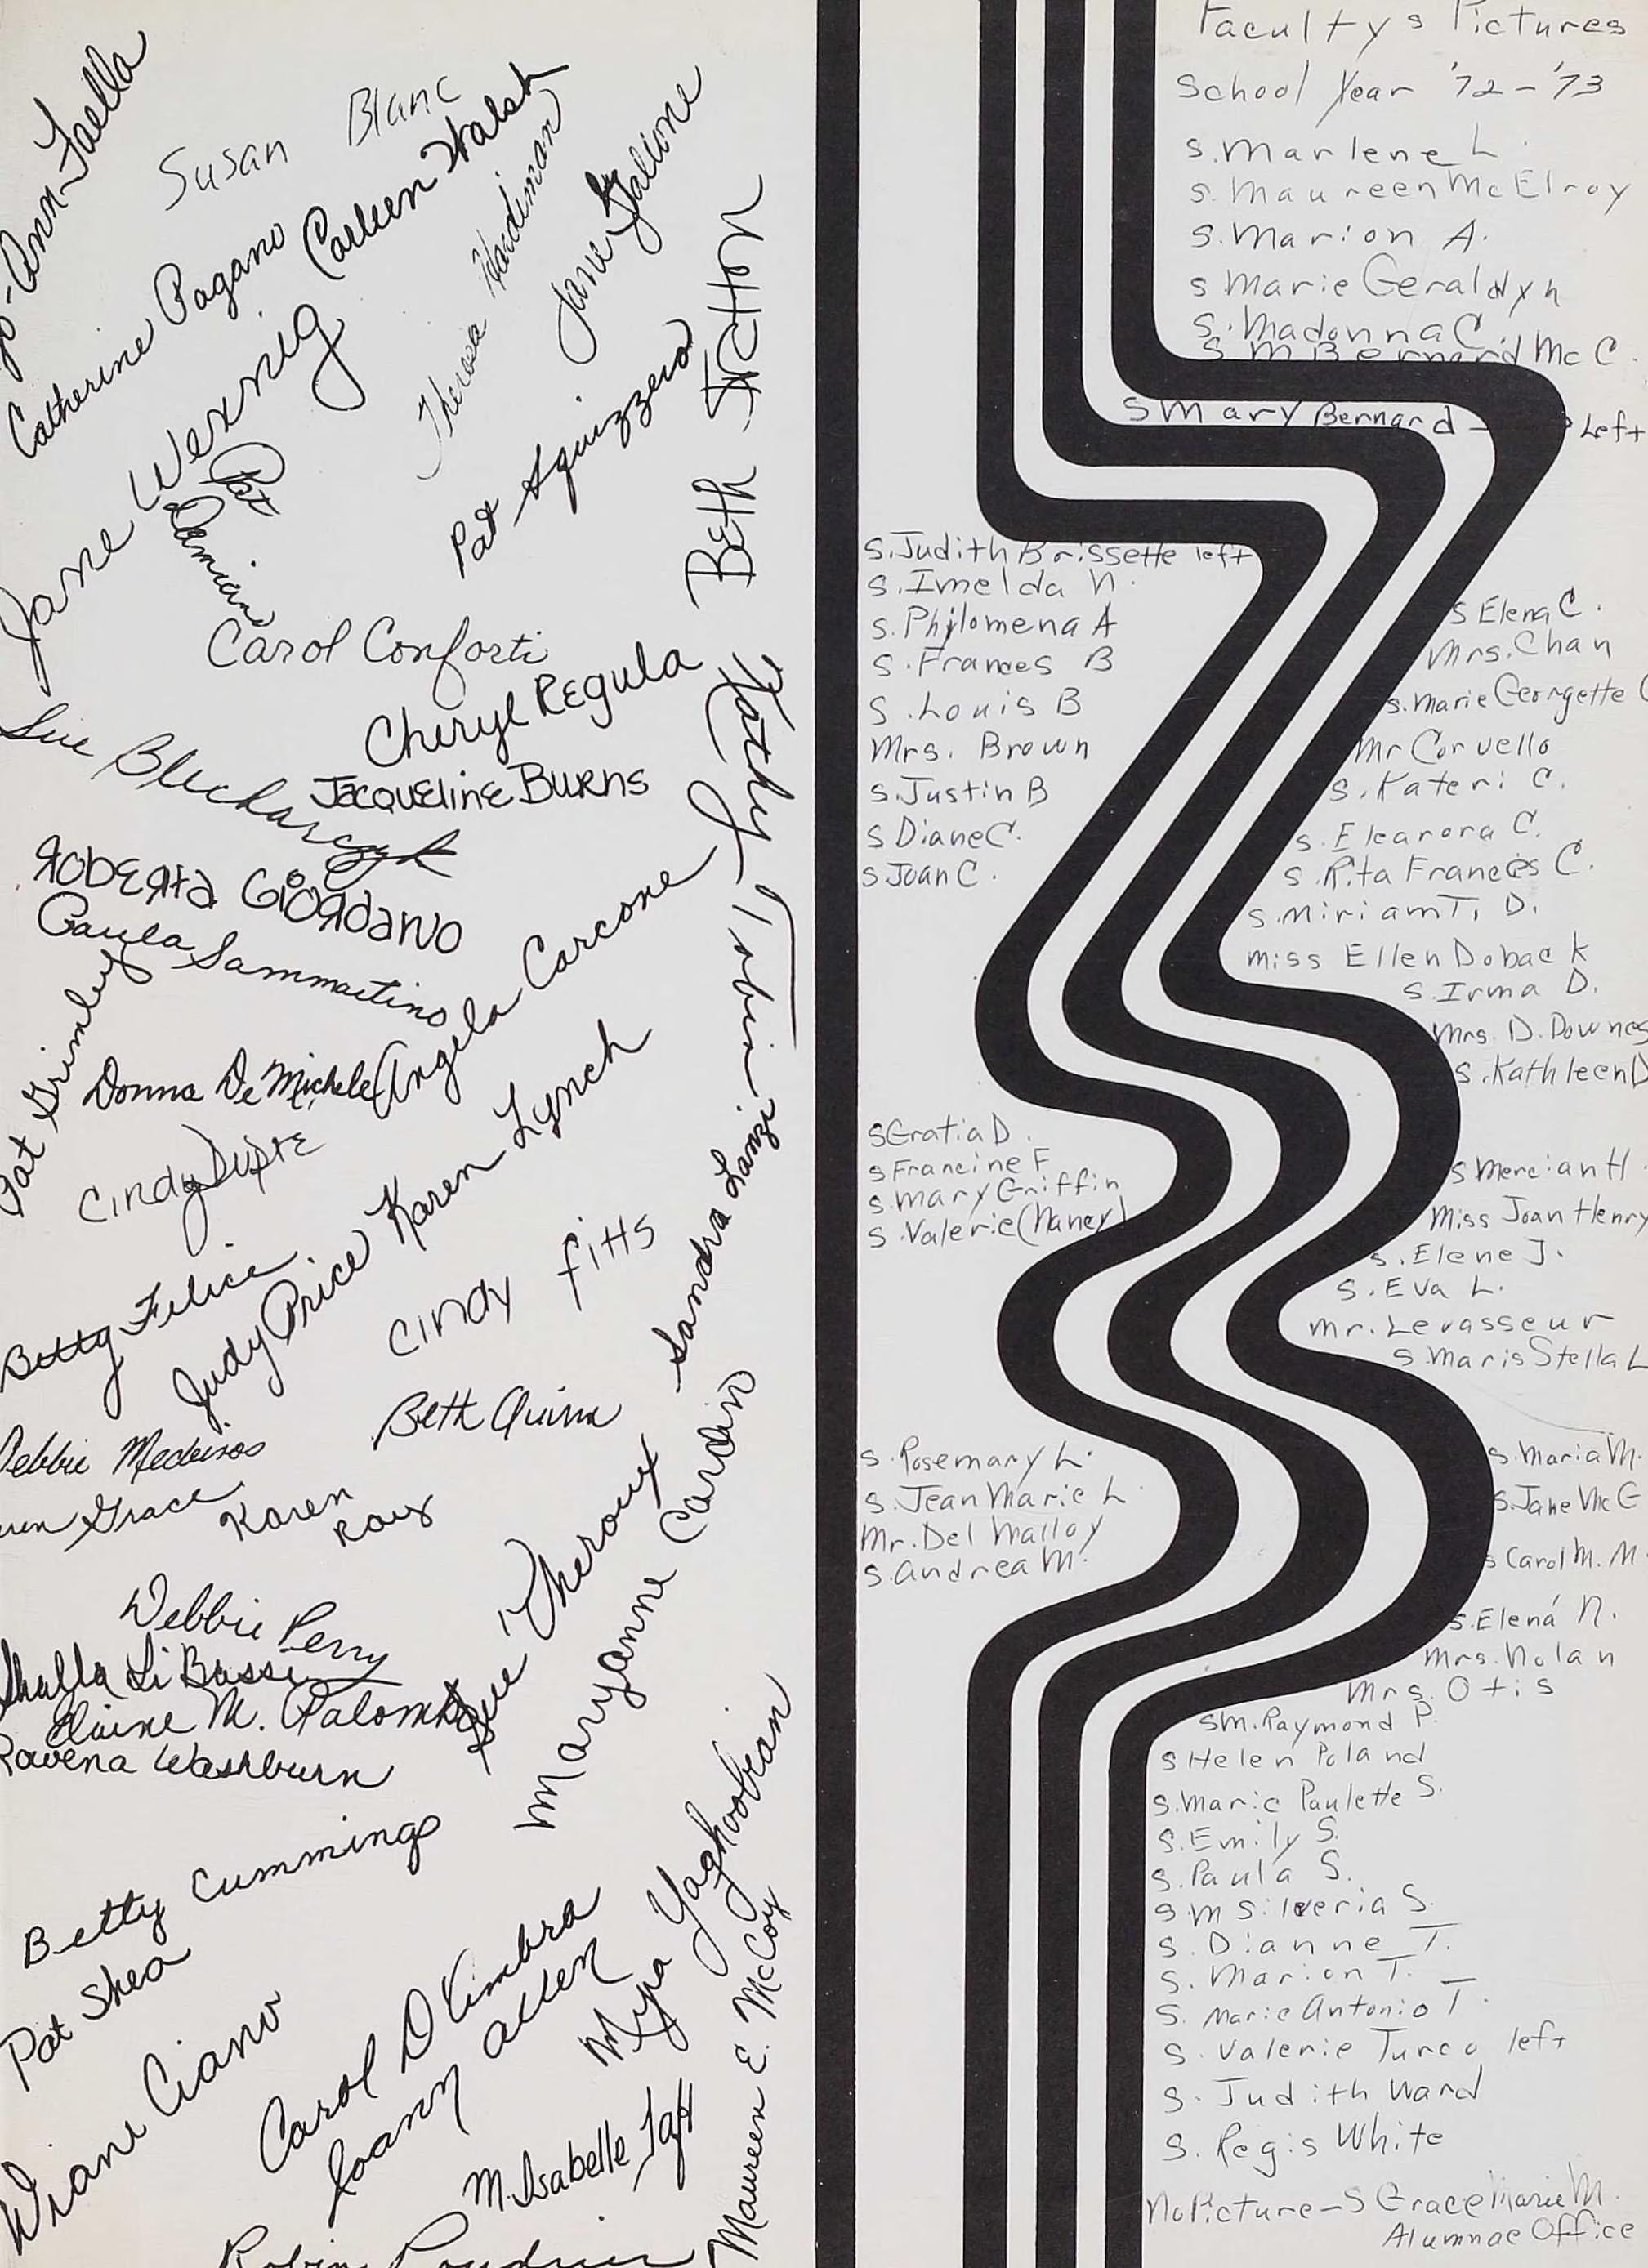 Susan Blanc
-Ann Faella
Catherine Pagano
Carleen Walsh
Theresa Hardiman
Jane Galione
Jane Wexnig
Pat Damian
Pat Squizzero
Beth
Carol Conforti
Cheryl Regula
Sue Blecharczyk
Jacqueline Burns
Roberta Giordano
Paula Sammartino
Kathy
Angela Carcone
Pat Grimley
Donna DeMichele
Cindy
Karen Lynch
Judy Price
Betty Felice
Cindy Fitts
Sandra Lanzi
Beth Quinn
Debbie Medeiros
Grace
Karen
Sue Theroux
Maryanne Cardino
Debbie Perry
LiBassi
Elaine M. Palombo
Rowena Washburn
Betty Cummings
Pat Shea
Diane Ciano
Carol
Joann Allen
Myra Yaghoobian
Maureen E. McCoy
M. Isabelle Taft
Robin
Faculty's Pictures
School Year '72-'73
S. Marlene L.
S. Maureen McElroy
S. Marion A.
S Marie Geraldyn
S. Madonna C.
S M Bernard McC.
S Mary Bernard - Left
S. Judith Brissette left
S. Imelda N.
S. Philomena A
S. Frances B
S. Louis B
Mrs. Brown
S. Justin B
S Diane C.
S Joan C.
S Elena C.
Mrs. Chan
S. Marie Georgette C
Mr Corvello
S. Kateri C.
S. Elearora C.
S. Rita Frances C.
S. Miriam T. D.
Miss Ellen Doback
S. Irma D.
Mrs. D. Downes
S. Kathleen D
S Gratia D.
S Francine F
S. Mary Griffin
S. Valerie (Nancy)
S Mercian H.
Miss Joan Henry
S. Elene J.
S. Eva L.
Mr. Levasseur
S Maris Stella L
S. Rosemary L.
S. Jean Marie L.
Mr. Del Malloy
S. Andrea M.
S. Maria M.
S. Jane McG
S Carol M. M.
S. Elena N.
Mrs. Nolan
Mrs. Otis
SM. Raymond P.
S Helen Poland
S. Marie Paulette S.
S. Emily S.
S. Paula S.
S M Silveria S.
S. Dianne T.
S. Marion T.
S. Marie Antonio T.
S. Valerie Turco left
S. Judith Ward
S. Regis White
No Picture - S Grace Marie M.
Alumnae Office